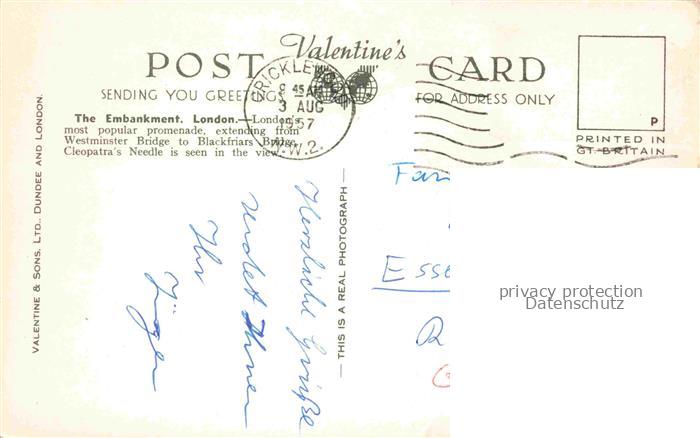 Valentine's
POST CARD
SENDING YOU GREETINGS FOR ADDRESS ONLY
The Embankment, London.—London's
most popular promenade, extending from
Westminster Bridge to Blackfriars Bridge.
Cleopatra's Needle is seen in the view.
CRICKLEWOOD
9 45 AM
3 AUG
1957
N.W.2.
P
PRINTED IN
GT. BRITAIN
VALENTINE & SONS, LTD., DUNDEE AND LONDON.
THIS IS A REAL PHOTOGRAPH
Herzliche Grüße
sendet Ihnen
Ihr
Jürgen
Fam
Esse
privacy protection
Datenschutz